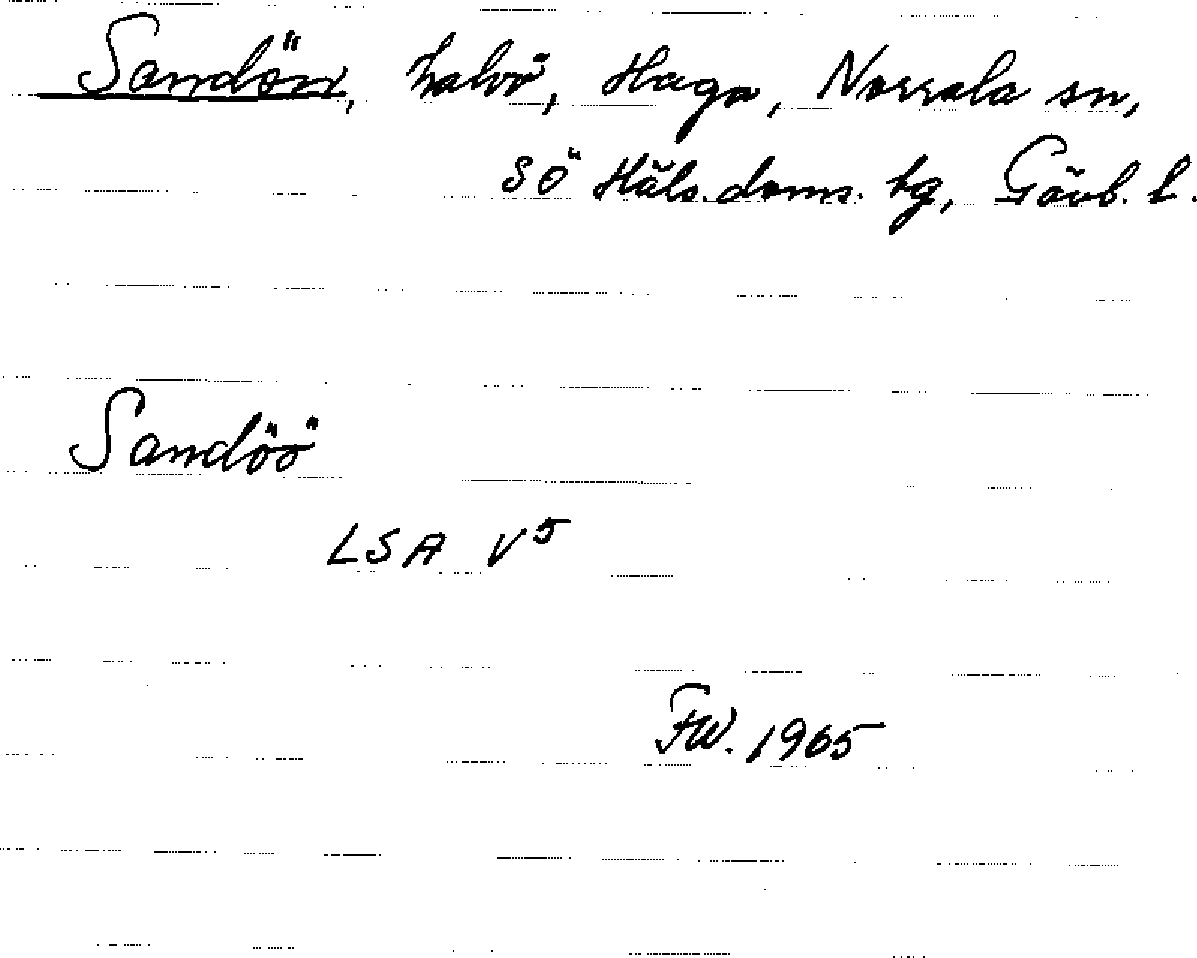 Sandön, halvö, Haga, Norrala sn,
SÖ Häls. doms. tg, Gävb. l.
Sandöö
LSA V5
FW. 1965